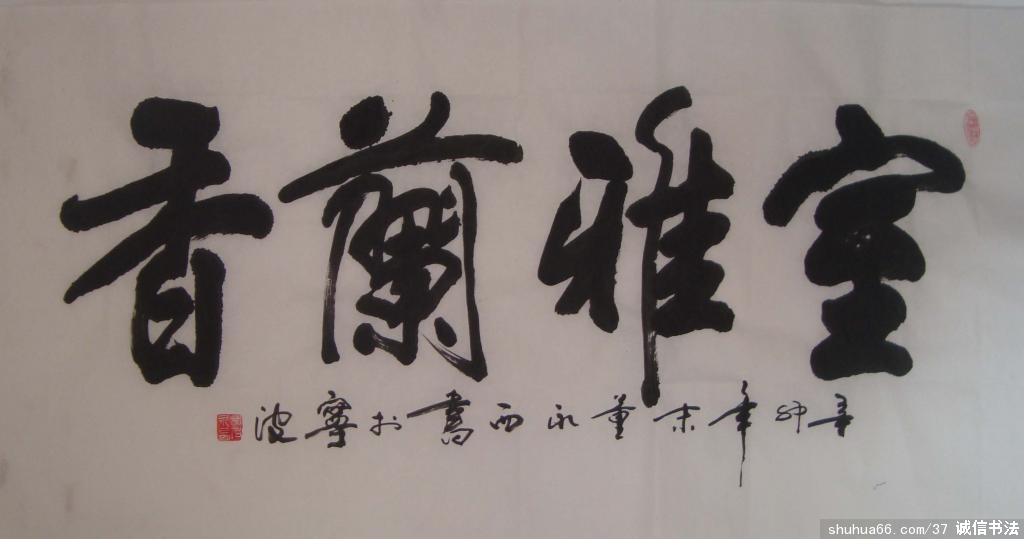 室雅蘭香
辛卯年末董永西書於寧波
shuhua66.com/37 诚信书法